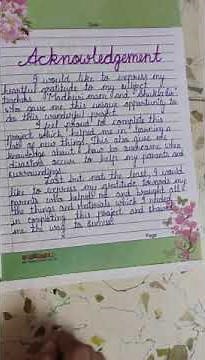 Date
Acknowledgement
I would like to express my
heartful gratitude to my subject
teachers "Madhvi mam and
who give me this unique opportunity to
do this wonderful project
of to complete this
project which helped me in learning a
lots of new things. This also give me
knowledge about how to overcame when
disasters occurs to help my parents and
surroundings.
Last but not the least, I would
like to express my gratitude towards my
parents who helped me and brought all
the things and materials which I needed
in completing this project and showed
me the way to succeed.
Page